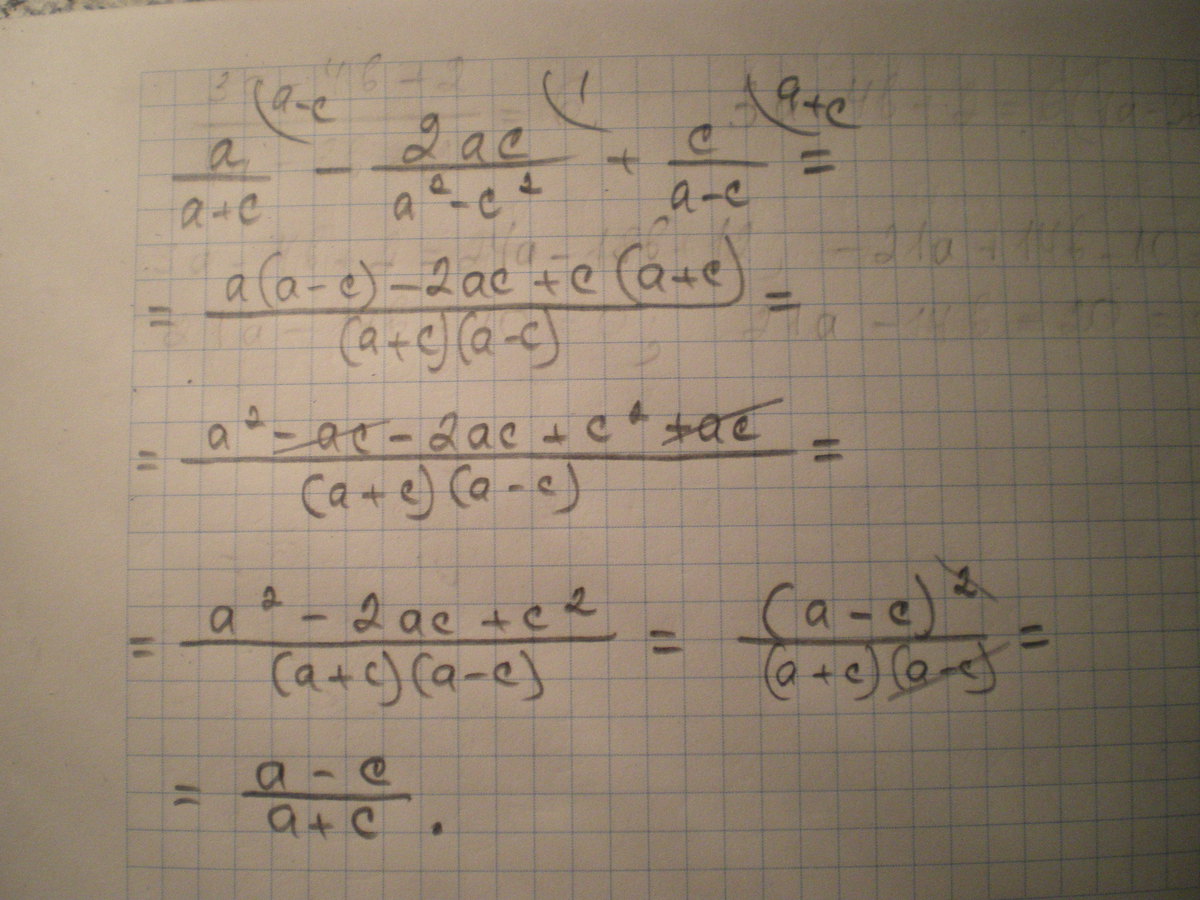 a/(a+c) (a-c - 2ac/(a²-c²) (1 + c/(a-c) (a+c =
= (a(a-c)-2ac+c(a+c))/((a+c)(a-c)) =
= (a²-ac-2ac+c²+ac)/((a+c)(a-c)) =
= (a²-2ac+c²)/((a+c)(a-c)) = (a-c)²/((a+c)(a-c)) =
= (a-c)/(a+c).